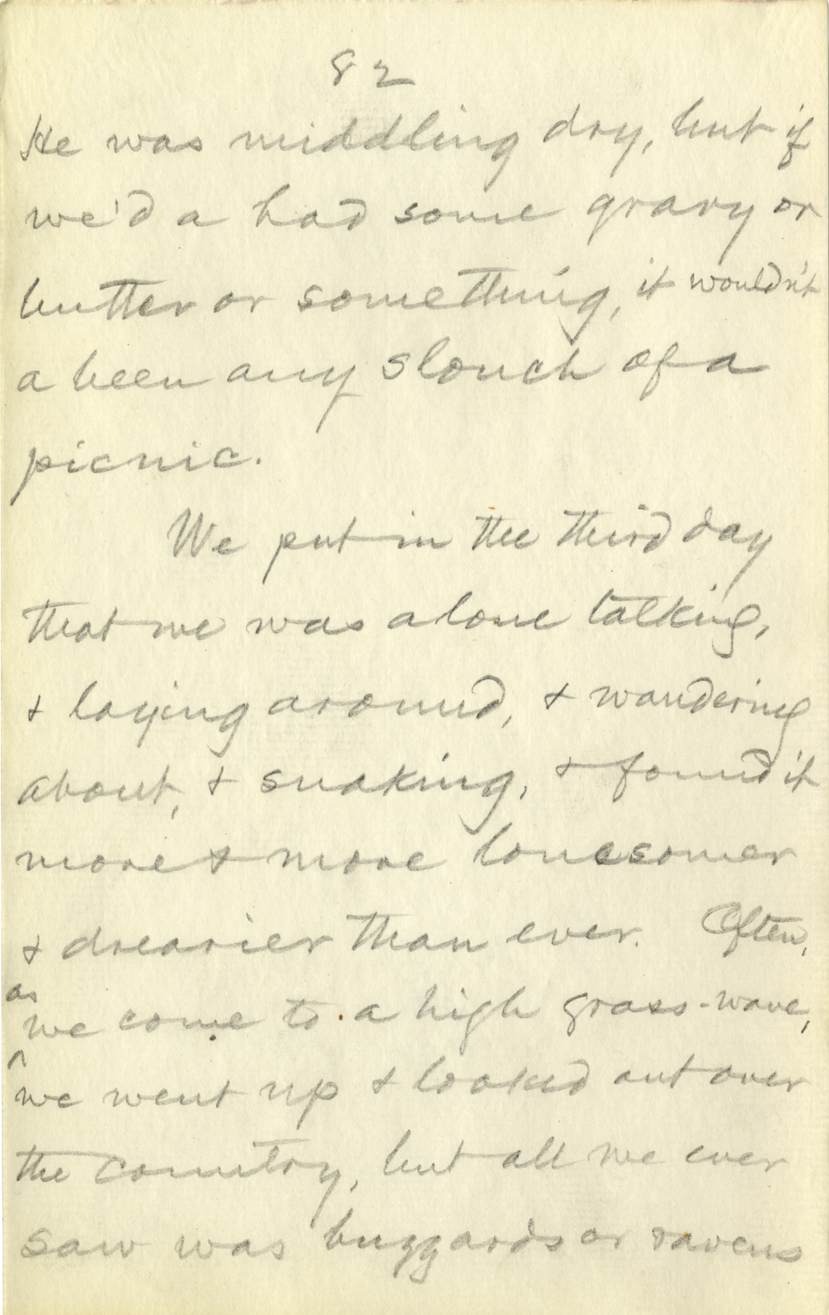 82
He was middling dry, but if
we'd a had some gravy or
butter or something, it wouldn't
a been any slouch of a
picnic.
We put in the third day
that we was alone talking,
& laying around, & wandering
about, & snaking, & found it
more & more lonesomer
& drearier than ever. Often,
as
we come to a high grass-wave,
we went up & looked out over
the country, but all we ever
saw was buzzards or ravens